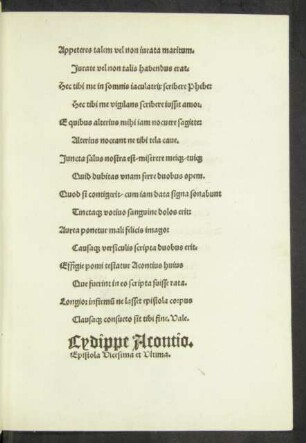 Appeteres talem vel non iurata maritum.
Iurate vel non talis habendus erat.
Hec tibi me in somnis iaculatrix scribere Phebe:
Hec tibi me vigilans scribere iussit amor.
E quibus alterius mihi iam nocuere sagitte:
Alterius noceant ne tibi tela cave.
Juncta salus nostra est-miserere meiq;-tuiq;
Quid dubitas unam ferre duobus opem.
Quod si contigerit-cum iam data signa sonabunt
Tinctaq; votivo sanguine delos erit:
Aurea ponetur mali felicis imago:
Causaq; versiculis scripta duobus erit.
Effigie pomi testatur Acontius huius
Que fuerint in eo scripta fuisse rata.
Longior infirmũ ne lasset epistola corpus
Clausaq; consueto sit tibi fine. Vale.
Cydippe Acontio.
Epistola Vicesima et Ultima.